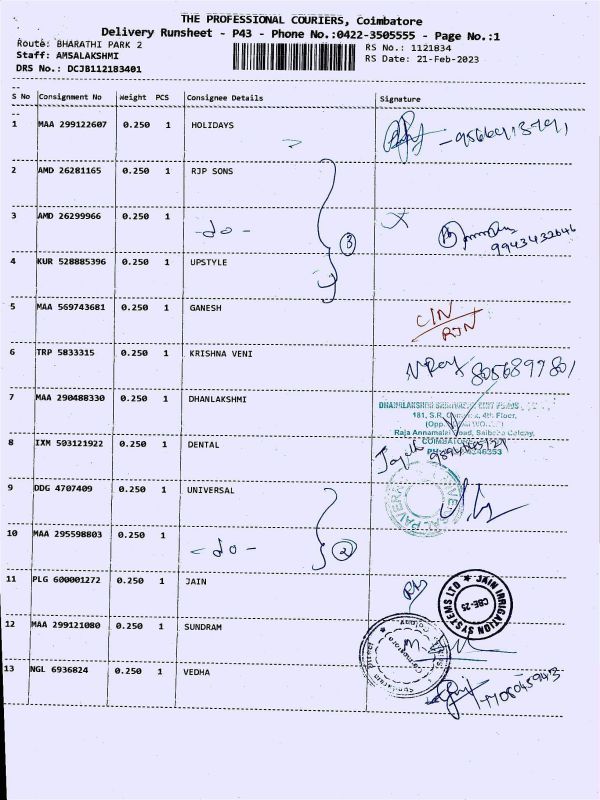 THE PROFESSIONAL COURIERS, Coimbatore
Delivery Runsheet - P43 - Phone No.:0422-3505555 - Page No.:1
Route: BHARATHI PARK 2
Staff: AMSALAKSHMI
DRS No.: DCJB112183401
RS No.: 1121834
RS Date: 21-Feb-2023
S No Consignment No Weight PCS Consignee Details Signature
1 MAA 299122607 0.250 1 HOLIDAYS
2 AMD 26281165 0.250 1 RJP SONS
3 AMD 26299966 0.250 1 -do- 3 9943432646
4 KUR 528885396 0.250 1 UPSTYLE
5 MAA 569743681 0.250 1 GANESH CIN
6 TRP 5833315 0.250 1 KRISHNA VENI 8056899801
7 MAA 290488330 0.250 1 DHANLAKSHMI
181, S.R. 4th Floor,
(Opp.
Raja Annamalai Road, Saibaba Colony,
8 IXM 503121922 0.250 1 DENTAL
9 DDG 4707409 0.250 1 UNIVERSAL
10 MAA 295598803 0.250 1 -do- 2
11 PLG 600001272 0.250 1 JAIN
JAIN IRRIGATION SYSTEMS LTD
CBE-25
12 MAA 299121080 0.250 1 SUNDRAM
13 NGL 6936824 0.250 1 VEDHA